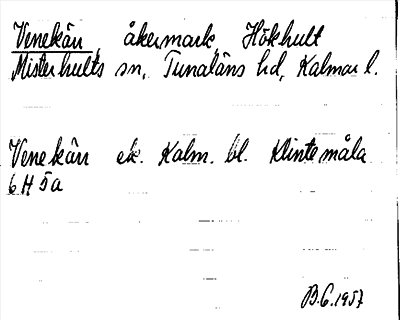 Venekärr, åkermark, Hökhult
Misterhults sn, Tunaläns hd, Kalmar l.
Venekärr ek. Kalm. bl. Klintemåla
6H 5a
B.G. 1957